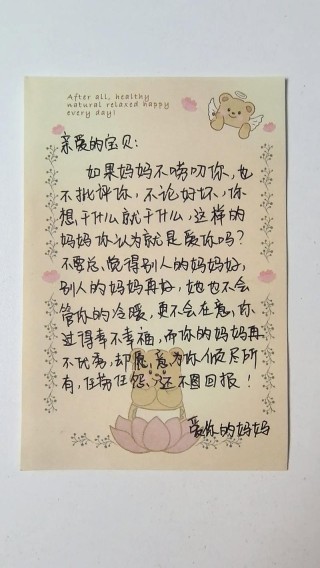 After all, healthy
natural relaxed happy
every day!
亲爱的宝贝:
如果妈妈不唠叨你,也
不批评你,不论好坏,你
想干什么就干什么,这样的
妈妈你认为就是爱你吗?
不要总觉得别人的妈妈好,
别人的妈妈再好,她也不会
管你的冷暖,更不会在意,你
过得幸不幸福,而你的妈妈再
不优秀,却愿意为你倾尽所
有,任劳任怨,还不图回报!
爱你的妈妈